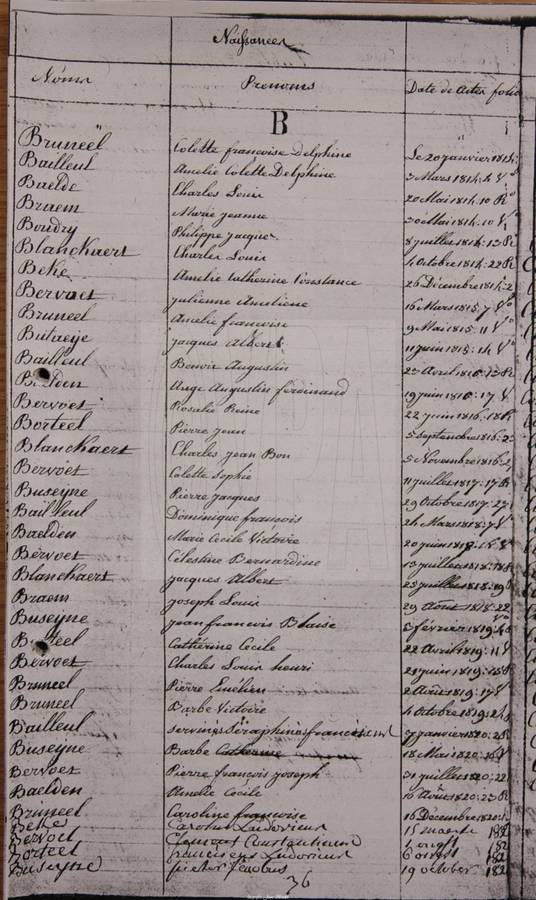 Naissances
Noms Prenoms Date de Actes folio
B
Bruneel Colette francoise Delphine Le 20 janvier 1814
Bailleul Amelie Colette Delphine 3 Mars 1814: 4 Vo
Baelde Charles Louis 20 Mai 1814: 10 Ro
Braem Marie jeanne 30 Mai 1814: 10 Vo
Boudry Philippe jacques 8 juillet 1814: 13 Ro
Blanckaert Charles Louis 4 Octobre 1814: 22 Ro
Beke Amelie Catherine Constance 26 Décembre 1814: 2
Bervoet julienne Ameliene 16 Mars 1815, 7 Vo
Bruneel Amelie francoise 9 Mai 1815: 11 Vo
Butaeije jacques Albert 11 juin 1815: 14 Vo
Bailleul Benoir Augustin 23 Avril 1816: 13 Ro
Ange Augustin ferdinand 19 juin 1816: 17 V
Bervoet Rosalie Reine 22 juin 1816: 18 Ro
Borteel Pierre jean 5 Septembre 1816: 2
Blanckaert Charles jean Bon 5 Novembre 1816: 2
Bervoet Colette Sophie 11 juillet 1817: 17 Ro
Buseyne Pierre jacques 29 Octobre 1817: 27
Bailleul Dominique francois 24 Mars 1818: 7 Vo
Baelden Marie Cecile Victoire 20 juin 1818: 16 Vo
Bervoet Célestine Bernardine 13 juillet 1818: 18
Blanckaert jacques Albert 25 juillet 1818: 19
Braem joseph Louis 29 Août 1818: 22
Buseyne jean francois Blaise 5 février 1819: 4
Catherine Cecile 22 Avril 1819: 11 V
Bervoet Charles Louis henri 21 juin 1819: 15 Ro
Bruneel Pierre Emélien 2 Août 1819: 19 V
Bruneel Barbe Victoire 4 Octobre 1819: 24
Bailleul Servines Séraphines 7 janvier 1820: 2
Buseyne Barbe Catherine 18 Mai 1820: 16 V
Bervoet Pierre francois joseph 31 juillet 1820: 22
Baelden Amelie Cecile 16 Août 1820: 23 Ro
Bruneel Caroline francoise 16 Décembre 1820:
Beke Carolus Ludovicus 15 maerte 182
Bervoet Clement 182
Borteel franciscus Ludovicus 6 182
Buseyne 19 october 182
36